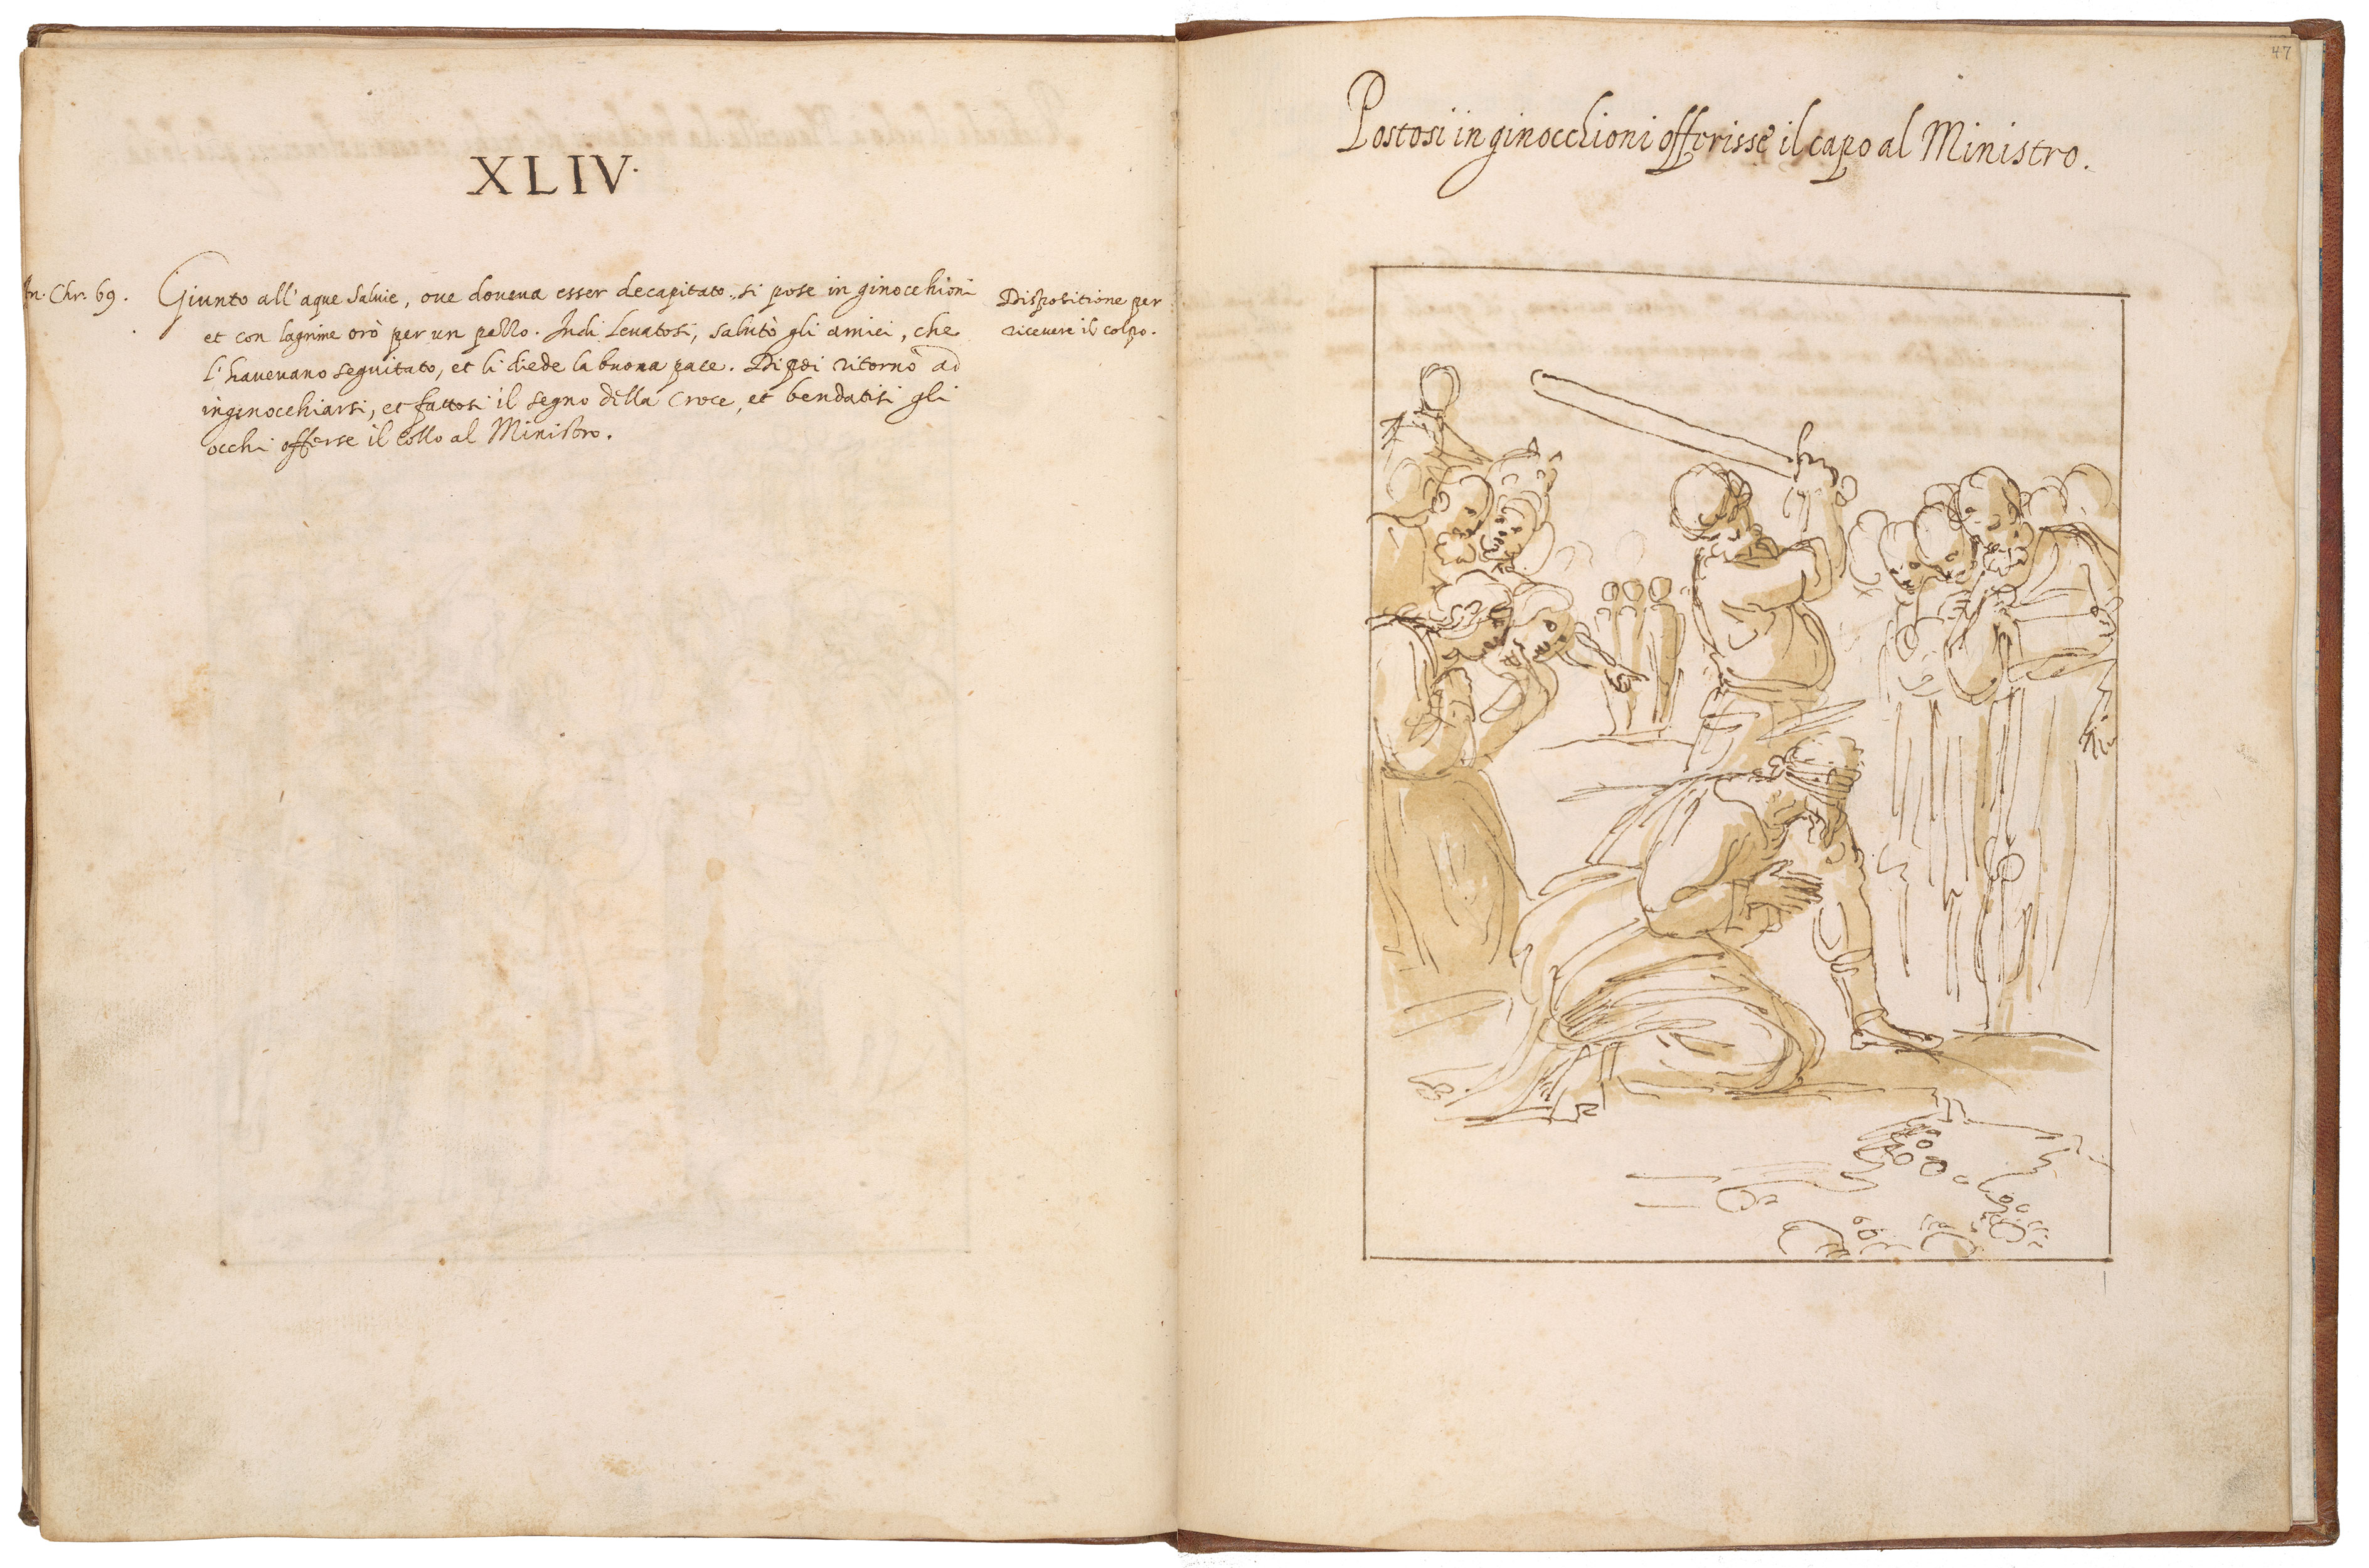 XLIV.
An. Chr. 69.
Giunto all'aque Saluie, oue doueua esser decapitato, si pose in ginocchioni
et con lagrime orò per un pezzo. Indi leuatosi, salutò gli amici, che
l'haueuano seguitato, et li diede la buona pace. Di poi ritornò ad
inginocchiarsi, et fattosi il segno della Croce, et bendatisi gli
occhi offerse il collo al Ministro.
Dispositione per
riceuere il colpo.
47
Postosi in ginocchioni offerisse il capo al Ministro.